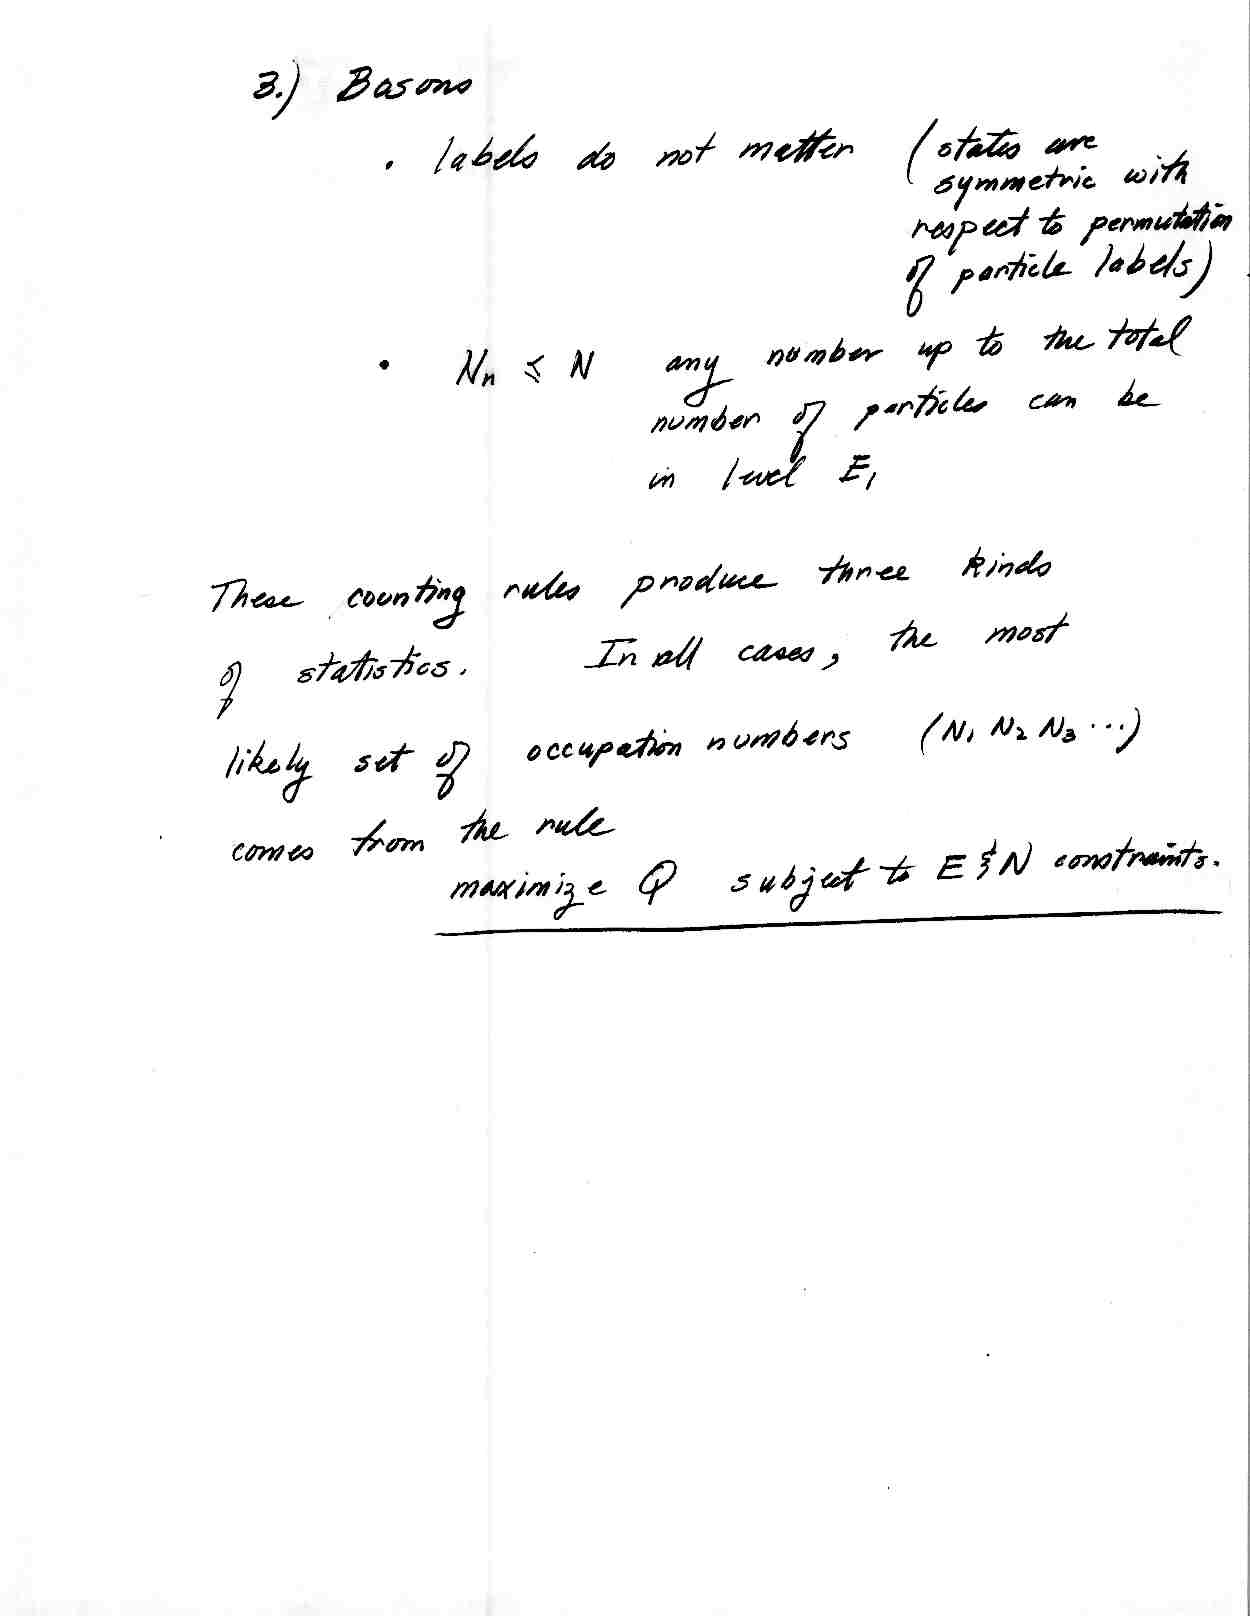 3.) Bosons
• labels do not matter (states are
symmetric with
respect to permutation
of particle labels)
• Nₙ ≤ N any number up to the total
number of particles can be
in level E₁
These counting rules produce three kinds
of statistics. In all cases, the most
likely set of occupation numbers (N₁ N₂ N₃ ···)
comes from the rule
maximize Q subject to E & N constraints.